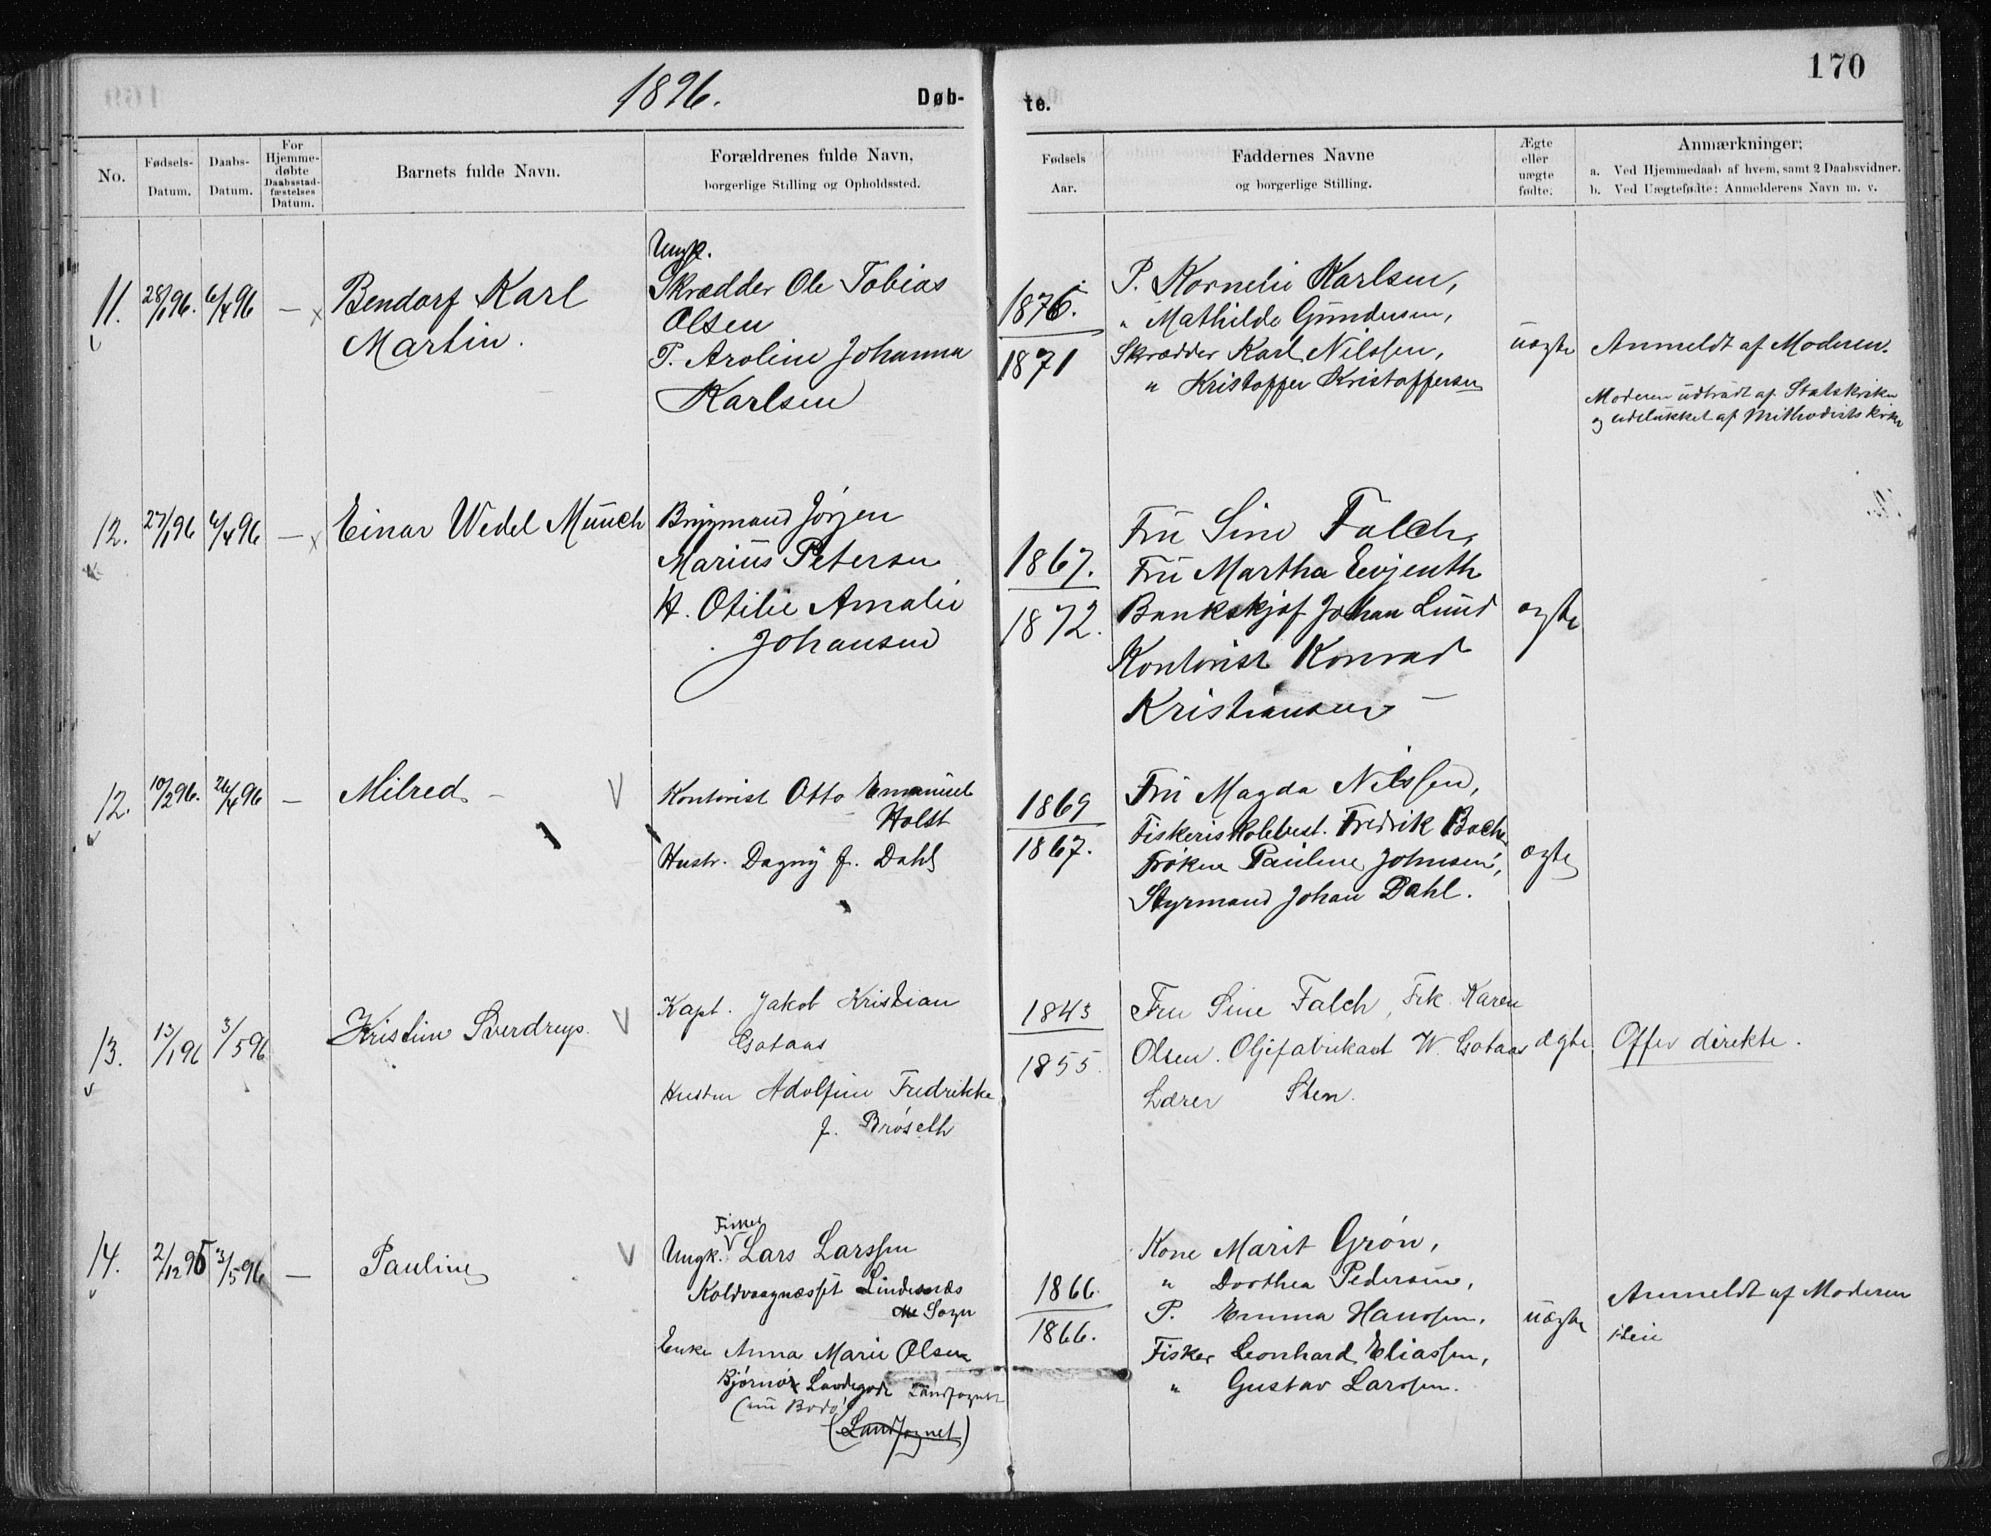 1896.
Døb-
te.
170
No.
Fødsels-
Datum.
Daabs-
Datum.
For
Hjemme-
døbte
Daabsstad-
fæstelses
Datum.
Barnets fulde Navn.
Forældrenes fulde Navn,
borgerlige Stilling og Opholdssted.
Fødsels
Aar.
Faddernes Navne
og borgerlige Stilling.
Ægte
eller
uægte
fødte.
Anmærkninger:
a. Ved Hjemmedaab af hvem, samt 2 Daabsvidner.
b. Ved Uægtefødte: Anmelderens Navn m. v.
11.
28/1 96.
6/4 96
—
Bendorf Karl
Martin.
Ungk.
Skrædder Ole Tobias
Olsen
P. Aroline Johanna
Karlsen
1876.
1871
P. Kornelie Karlsen,
" Mathilde Gundersen,
Skrædder Karl Nilssen,
" Kristoffer Kristoffersen
uægte
Anmeldt af Moderen.
Moderen udtrådt af Statskirken
og udelukket af Methodistkirken
12.
27/1 96
6/4 96
—
Einar Wedel Münch
Brygmand Jörgen
Marius Petersen
H. Otilie Amalie
Johansen
1867.
1872.
Fru Sine Falch,
Fru Martha Evjenth
Bankskjef Johan Lund
Kontorist Konrad
Kristiansen —
ægte
12.
10/2 96.
26/4 96
—
Milred –
Kontorist Otto Emanuel
Holst
Hustr. Dagny f. Dahl
1869
1867.
Fru Magda Nilssen,
Fiskeriskolebest. Fredrik Bache
Frøken Pauline Johnsen,
Styrmand Johan Dahl.
ægte
13.
13/1 96
3/5 96
Kristine Sverdrup.
Kapt. Jakob Kristian
Gotaas
Hustru Adolfine Fredrikke
f. Brøseth
1843
1855.
Fru Sine Falch, Frk. Karen
Olsen. Oljefabrikant W. Gotaas
Lærer Sten.
ægte
Offer direkte.
14.
2/12 95
3/5 96
—
Pauline
Fisker
Ungk. Lars Larssen
Koldvaagnæsset Lindesnæs
Sogn
Enke Anna Marie Olsen
Bjørnør Landegode Landsognet
(nu Bodø)
(Landsognet)
1866.
1866.
Kone Marit Grøn,
" Dorthea Pedersen,
P. Emma Hanssen,
Fisker Leonhard Eliassen,
" Gustav Larssen.
uægte
Anmeldt af Moderen